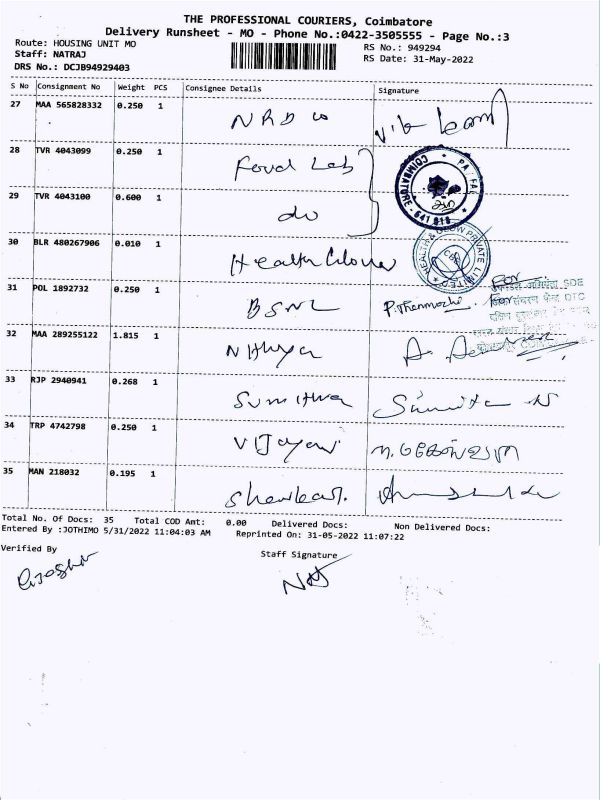 THE PROFESSIONAL COURIERS, Coimbatore
Delivery Runsheet - MO - Phone No.:0422-3505555 - Page No.:3
Route: HOUSING UNIT MO
RS No.: 949294
Staff: NATRAJ
RS Date: 31-May-2022
DRS No.: DCJB94929403
S No Consignment No Weight PCS Consignee Details Signature
27 MAA 565828332 0.250 1
28 TVR 4043099 0.250 1 Food Lab
29 TVR 4043100 0.600 1 do
COIMBATORE - 641 018
30 BLR 480267906 0.010 1 Health Glow
HEALTH & GLOW PRIVATE LIMITED
31 POL 1892732 0.250 1 BSNL P.Thenmozhi For
SDE
DTC
32 MAA 289255122 1.815 1 Nithya
33 RJP 2940941 0.268 1 Sumithra
34 TRP 4742798 0.250 1 Vijayan
35 MAN 218032 0.195 1 Shankar.
Total No. Of Docs: 35 Total COD Amt: 0.00 Delivered Docs: Non Delivered Docs:
Entered By :JOTHIMO 5/31/2022 11:04:03 AM Reprinted On: 31-05-2022 11:07:22
Verified By Staff Signature